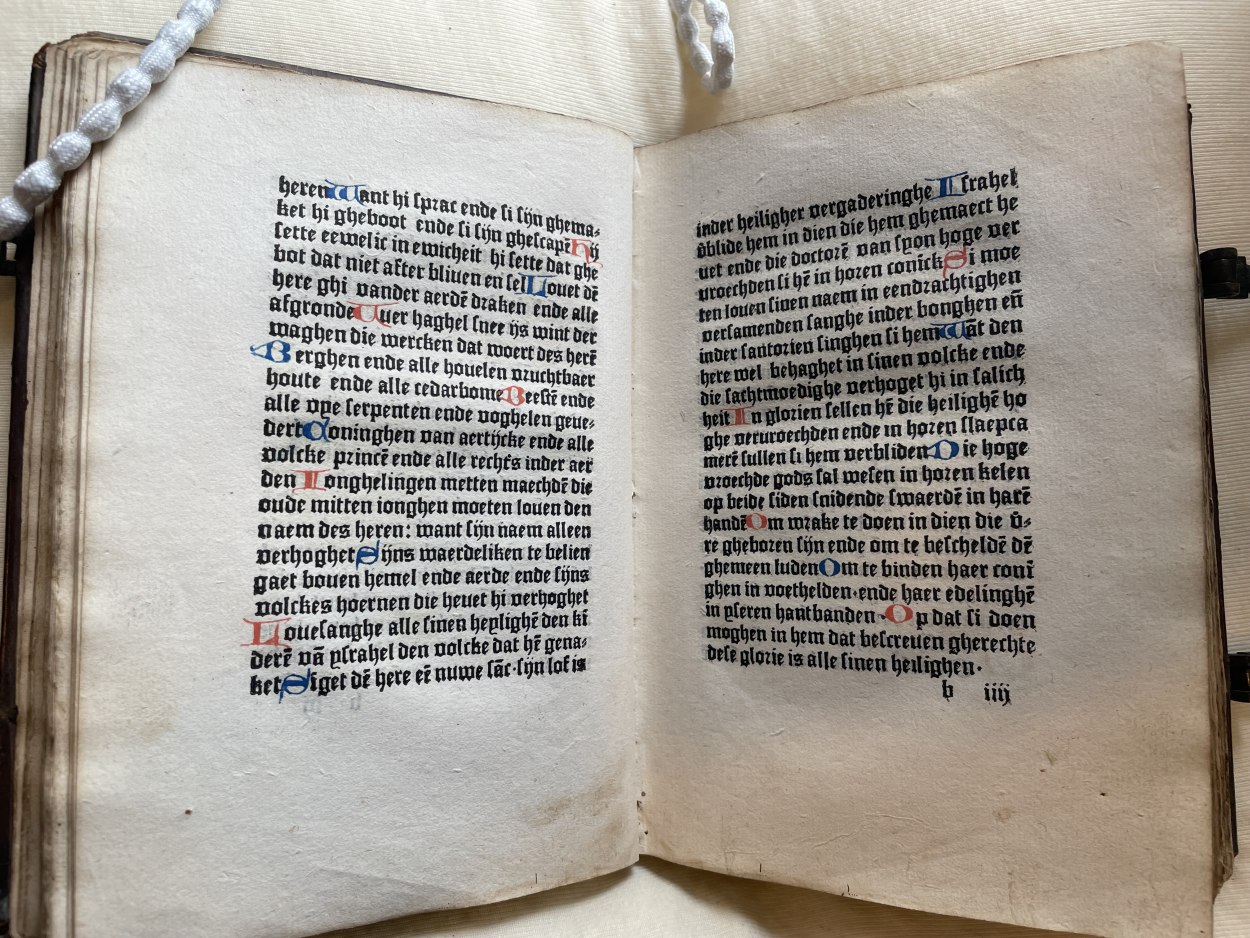 heren Want hi sprac ende si sijn ghema⸗
ket hi gheboot ende si sijn ghescapē Hij
sette eewelic in ewicheit hi sette dat ghe
bot dat niet after bliuen en sel Louet dē
here ghi vander aerdē draken ende alle
afgronde Vuer haghel snee ijs wint der
waghen die wercken dat woert des herē
Berghen ende alle houelen vruchtbaer
houte ende alle cedarbome Beestē ende
alle vpe serpenten ende voghelen geue⸗
dert Coninghen van aertijcke ende alle
volcke princē ende alle rechts inder aer
den Ionghelingen metten maechdē die
oude mitten ionghen moeten louen den
naem des heren: want sijn naem alleen
verhoghet Sijns waerdeliken te belien
gaet bouen hemel ende aerde ende sijns
volckes hoernen die heuet hi verhoghet
Louesanghe alle sinen heylighē den ki
derē vā ysrahel den volcke dat hē gena⸗
ket Siget dē here eē nuwe sāc·sijn lof is
inder heiligher vergaderinghe Israhel
v̄blide hem in dien die hem ghemaect he
uet ende die doctorē van syon hoge ver
vroechden si hē in horen conick Si moe
ten louen sinen naem in eendrachtighen
versamenden sanghe inder bonghen eñ
inder santorien singhen si hem Wāt den
here wel behaghet in sinen volcke ende
die sachtmoedighe verhoget hi in salich
heit In glorien sellen hē die heilighē ho
ghe vervroechden ende in horen slaepca
merē sullen si hem verbliden Die hoge
vroechde gods sal wesen in horen kelen
op beide siden snidende swaerdē in harē
handē Om wrake te doen in dien die v̄⸗
re gheboren sijn ende om te bescheldē dē
ghemeen luden Om te binden haer coni
ghen in voethelden·ende haer edelinghē
in yseren hantbanden·Op dat si doen
moghen in hem dat bescreuen gherechte
dese glorie is alle sinen heilighen·
b iiij